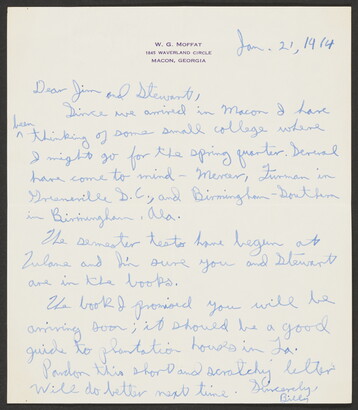 W. G. MOFFAT
1845 WAVERLAND CIRCLE
MACON, GEORGIA
Jan. 21, 1914
Dear Jim and Stewart,
Since we arrived in Macon I have
been
^ thinking of some small college where
I might go for the spring quarter. Several
have come to mind - Mercer, Furman in
Greenville S.C., and Birmingham-Southern
in Birmingham, Ala.
The semester tests have begun at
Tulane and I'm sure you and Stewart
are in the books.
The book I promised you will be
arriving soon; it should be a good
guide to plantation houses in La.
Pardon this short and scratchy letter
Will do better next time. Sincerely,
Bill